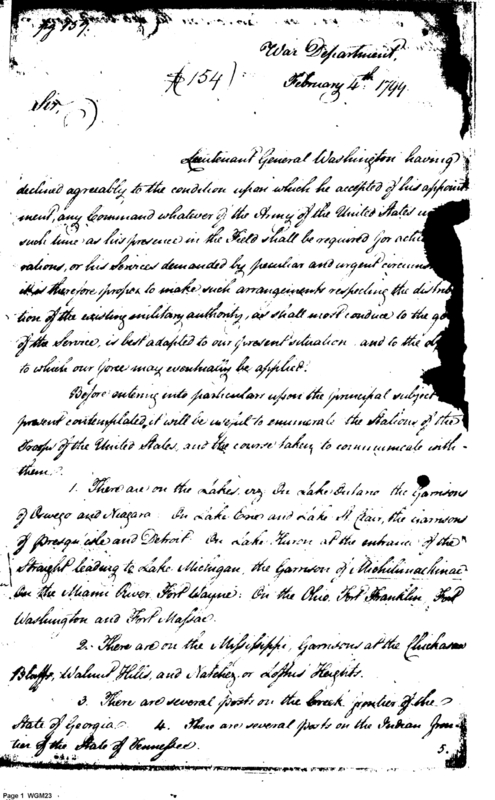 War Department,
(154)
February 4th 1799.
Sir,
Lieutenant General Washington having
declined agreeably to the condition upon which he accepted of his appoint
ment, any Command whatever of the Army of the United States
such time as his presence in the Field shall be required for
rations, or his services demanded by peculiar and urgent
it is therefore proper to make such arrangements respecting the
tion of the existing military authority, as shall most conduce to the
of the Service, is best adapted to our present situation and to the
to which our force may eventually be applied.
Before entering into particulars upon the principal subject
present contemplated, it will be useful to enumerate the Stations of the
Troops of the United States, and the course taken to communicate with
them.
1. There are on the Lakes, viz On Lake Ontario the Garrisons
of Oswego and Niagara. On Lake Erie and Lake St Clair, the Garrisons
of Presqu isle and Detroit. On Lake Huron at the entrance of the
Straight leading to Lake Michigan, the Garrison of Michilimachinac
On the Miami River, Fort Wayne: On the Ohio, Fort Franklin, Fort
Washington and Fort Massac.
2. There are on the Mississippi, Garrisons at the Chickasaw
Bluffs, Walnut Hills, and Natchez or Loftus Heights.
3. There are several posts on the Creek frontier of the
State of Georgia. 4. There are several posts on the Indian fron
tier of the State of Tennessee.
5.
Page 1 WGM23